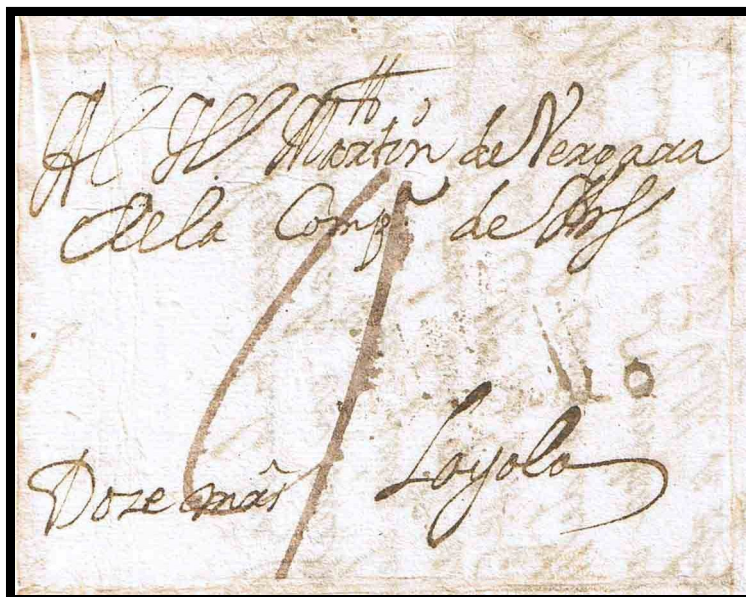 Al H.º Martin de Vergara
de la Comp.ª de Jhs
Doze mrs Loyola